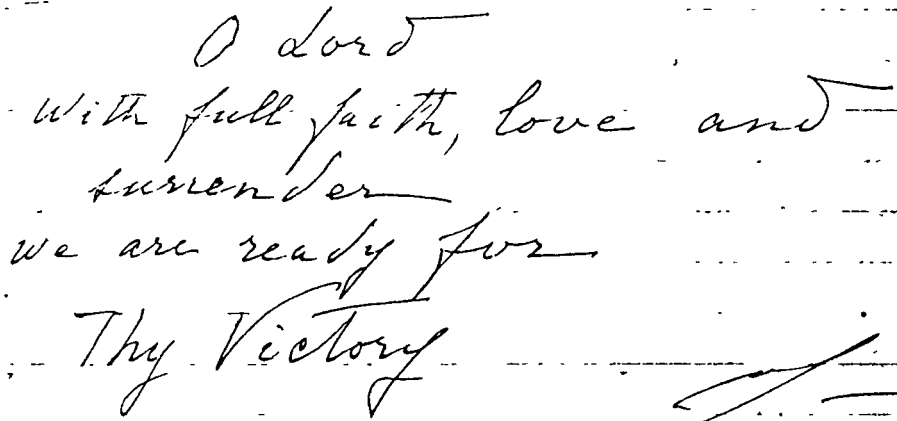 O Lord
with full faith, love and
surrender
we are ready for
Thy Victory